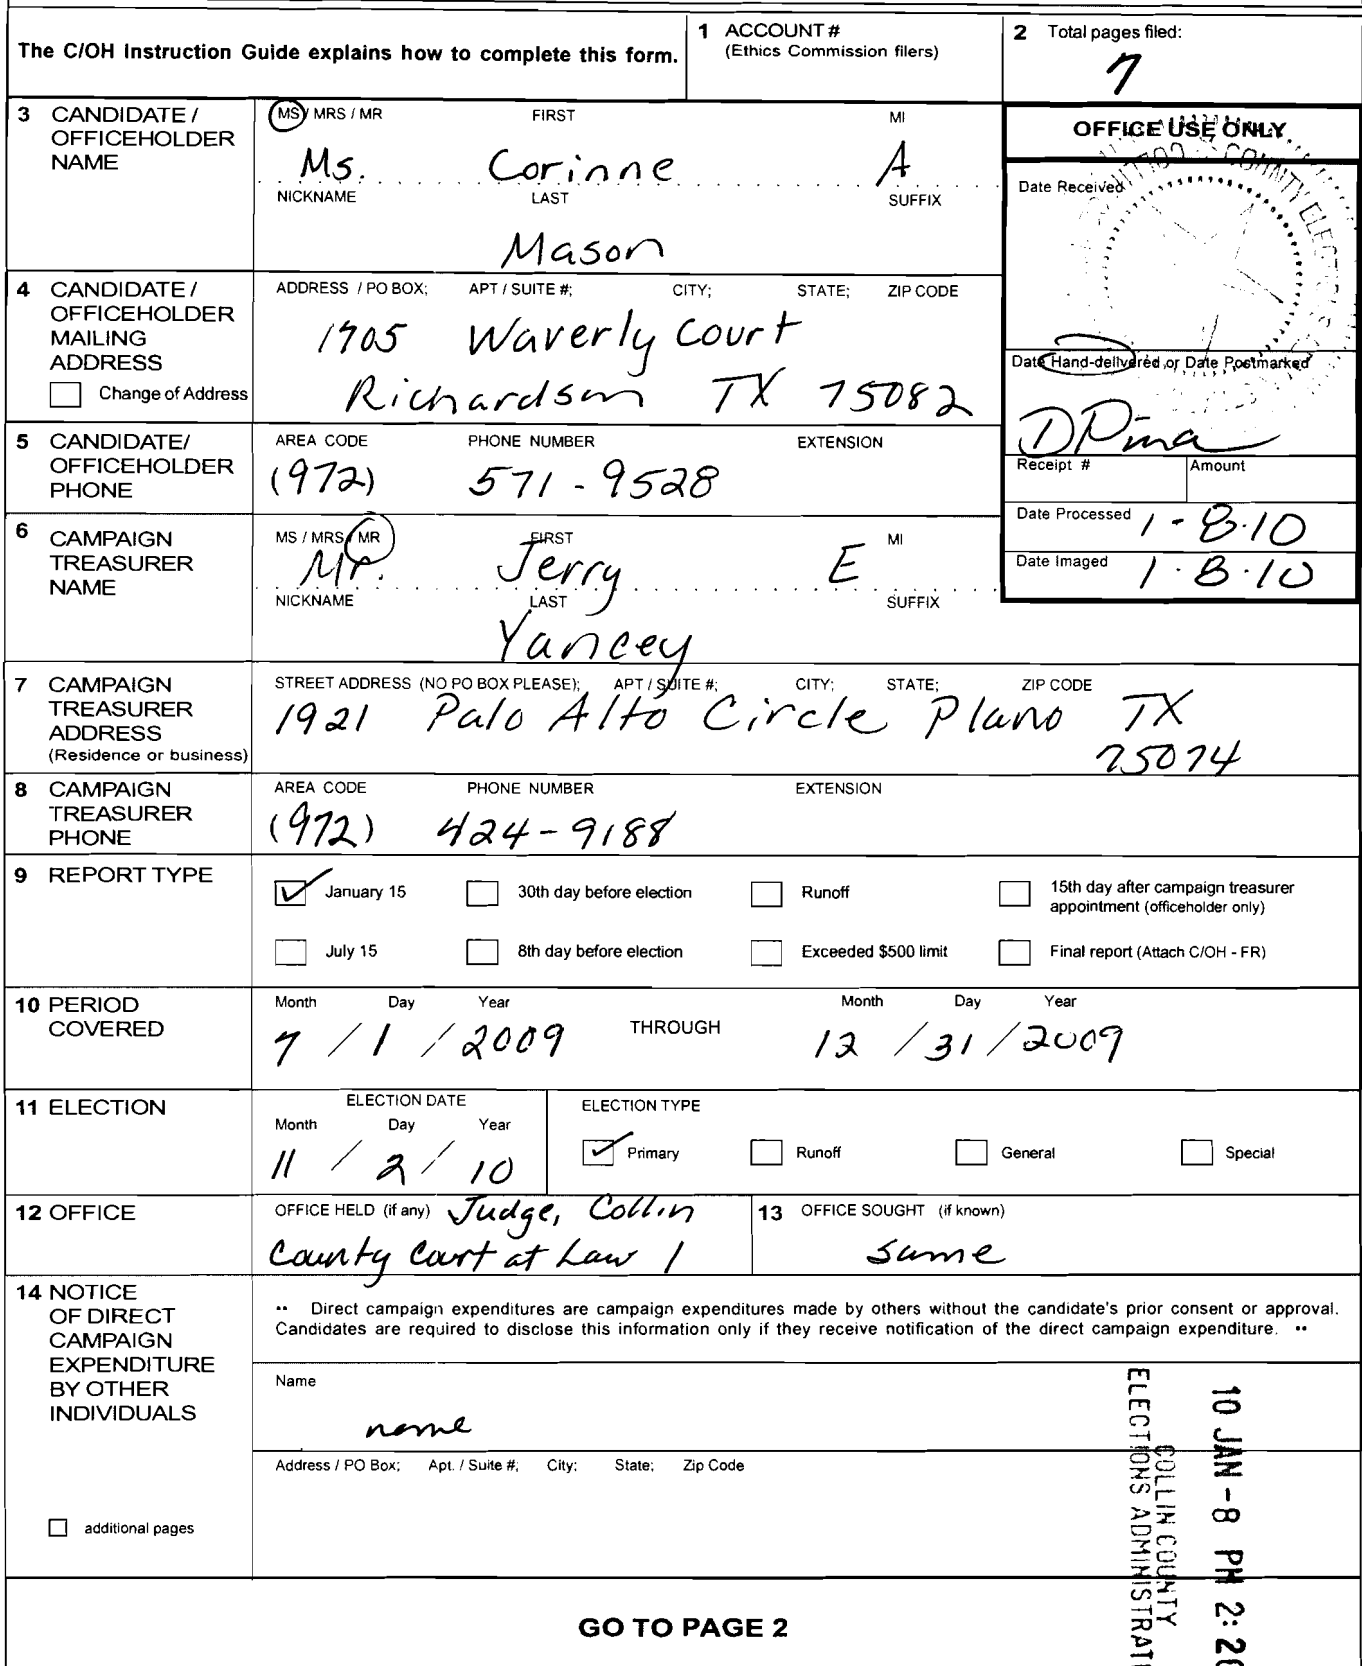 The C/OH Instruction Guide explains how to complete this form.
1 ACCOUNT #
(Ethics Commission filers)
2 Total pages filed:
7
3 CANDIDATE / OFFICEHOLDER NAME
MS / MRS / MR FIRST MI
Ms. Corinne A
NICKNAME LAST SUFFIX
Mason
OFFICE USE ONLY
Date Received
COLLIN COUNTY
Date Hand-delivered or Date Postmarked
DPina
Receipt # Amount
Date Processed 1-8-10
Date Imaged 1.8.10
4 CANDIDATE / OFFICEHOLDER MAILING ADDRESS
Change of Address
ADDRESS / PO BOX; APT / SUITE #; CITY; STATE; ZIP CODE
1705 Waverly Court
Richardson TX 75082
5 CANDIDATE/ OFFICEHOLDER PHONE
AREA CODE PHONE NUMBER EXTENSION
(972) 571-9528
6 CAMPAIGN TREASURER NAME
MS / MRS / MR FIRST MI
Mr. Jerry E
NICKNAME LAST SUFFIX
Yancey
7 CAMPAIGN TREASURER ADDRESS
(Residence or business)
STREET ADDRESS (NO PO BOX PLEASE); APT / SUITE #; CITY; STATE; ZIP CODE
1921 Palo Alto Circle Plano TX
75074
8 CAMPAIGN TREASURER PHONE
AREA CODE PHONE NUMBER EXTENSION
(972) 424-9188
9 REPORT TYPE
January 15 30th day before election Runoff 15th day after campaign treasurer appointment (officeholder only)
July 15 8th day before election Exceeded $500 limit Final report (Attach C/OH - FR)
10 PERIOD COVERED
Month Day Year THROUGH Month Day Year
7 / 1 / 2009 12 / 31 / 2009
11 ELECTION
ELECTION DATE
Month Day Year
11 / 2 / 10
ELECTION TYPE
Primary Runoff General Special
12 OFFICE
OFFICE HELD (if any) Judge, Collin
County Court at Law 1
13 OFFICE SOUGHT (if known)
same
14 NOTICE OF DIRECT CAMPAIGN EXPENDITURE BY OTHER INDIVIDUALS
•• Direct campaign expenditures are campaign expenditures made by others without the candidate's prior consent or approval.
Candidates are required to disclose this information only if they receive notification of the direct campaign expenditure. ••
Name
none
Address / PO Box; Apt. / Suite #; City; State; Zip Code
additional pages
10 JAN -8 PM 2:20
COLLIN COUNTY
ELECTIONS
GO TO PAGE 2